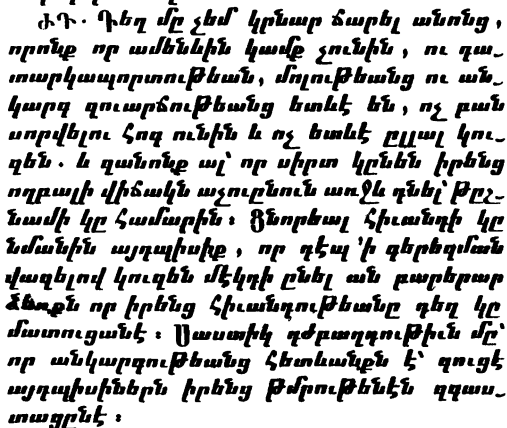 ԺԴ. Դեղ մը չեմ կրնար ճարել անոնց,
որոնք որ ամենևին կամք չունին, ու դա֊
տարկապորտութեան, մոլութեանց ու ան֊
կարգ զուարճութեանց ետևէ են, ոչ բան
սորվելու հոգ ունին և ոչ ետևէ ըլլալ կու֊
զեն. և զանոնք ալ՝ որ սիրտ կընեն իրենց
ողբալի վիճակն աչուընուն առջև դնել՝ թըշ֊
նամի կը համարին։ Ցնորեալ հիւանդի կը
նմանին այդպիսիք, որ դէպ ՚ի գերեզման
վազելով կուզեն մէկդի ընել ան բարերար
ձեռքն որ իրենց հիւանդութեանը դեղ կը
մատուցանէ։ Սաստիկ դժբաղդութիւն մը՝
որ անկարգութեանց հետևանքն է՝ գուցէ
այդպիսիներն իրենց թմրութենէն զգաս֊
տացընէ։